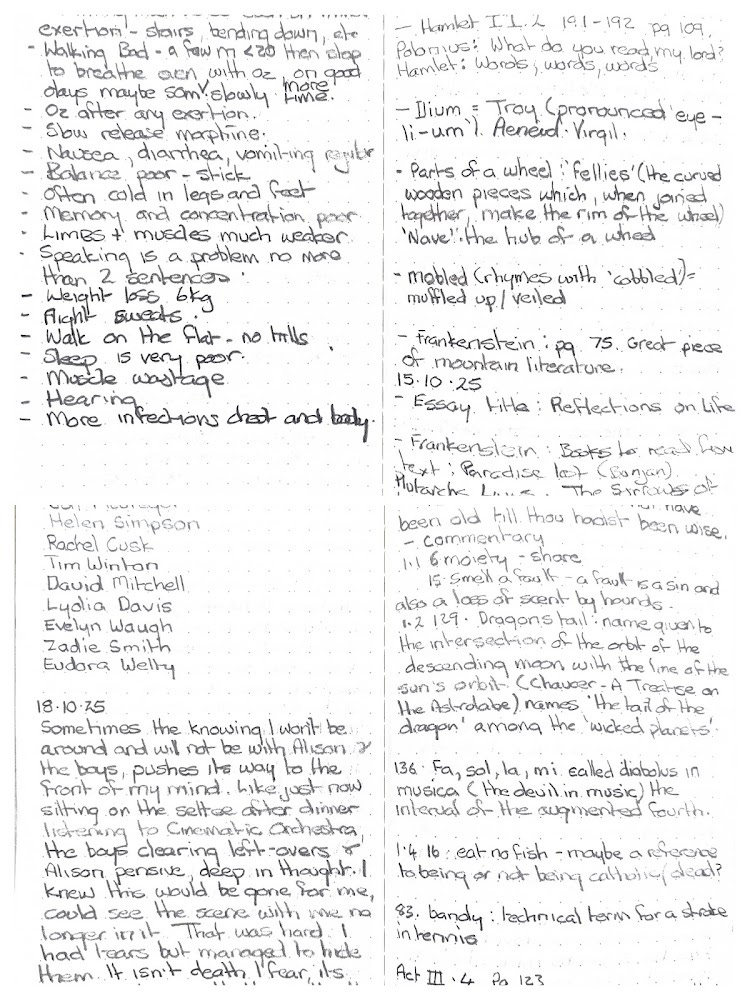 exertion - stairs, bending down, etc
- Walking Bad - a few m <20 then stop
to breathe even with O2, on good
days maybe 50m. slowly more
time.
- O2 after any exertion.
- Slow release morphine.
- Nausea, diarrhea, vomiting regular
- Balance poor - stick
- Often cold in legs and feet
- Memory and concentration poor
- Limbs + muscles much weaker
- Speaking is a problem no more
than 2 sentences.
- Weight loss 6kg
- Night sweats.
- Walk on the flat - no hills
- Sleep is very poor.
- Muscle wastage
- Hearing
- More infections chest and body.
- Hamlet II.2 191-192 pg 109.
Polonius: What do you read, my lord?
Hamlet: Words, words, words
- Ilium = Troy (pronounced 'eye-
li-um'). Aeneid. Virgil.
- Parts of a wheel: 'fellies' (the curved
wooden pieces which, when joined
together, make the rim of the wheel)
'Nave': the hub of a wheel
- mobled (rhymes with 'cobbled') =
muffled up / veiled
- Frankenstein: pg 75. Great piece
of mountain literature.
15.10.25
- Essay title: Reflections on Life
- Frankenstein: Books to read from
text: Paradise lost (Bunyan).
The Sorrows of
Helen Simpson
Rachel Cusk
Tim Winton
David Mitchell
Lydia Davis
Evelyn Waugh
Zadie Smith
Eudora Welty
18.10.25
Sometimes the knowing I won't be
around and will not be with Alison &
the boys, pushes its way to the
front of my mind. Like just now
sitting on the settee after dinner
listening to Cinematic Orchestra,
the boys clearing left-overs &
Alison pensive, deep in thought. I
knew this would be gone for me,
could see the scene with me no
longer in it. That was hard. I
had tears but managed to hide
them. It isn't death I fear, its
have
been old till thou hadst been wise.
- commentary
1.1 6 moiety - share
15. smell a fault - a fault is a sin and
also a loss of scent by hounds.
1.2 129. Dragons tail: name given to
the intersection of the orbit of the
descending moon with the line of the
sun's orbit. (Chaucer - A Treatise on
the Astrolabe) names 'the tail of the
dragon' among the 'wicked planets'.
136. Fa, sol, la, mi called diabolus in
musica (the devil in music) the
interval of the augmented fourth.
1.4 16: eat no fish - maybe a reference
to being or not being catholic/dead?
83. bandy: technical term for a stroke
in tennis
Act III.4 Pg 123